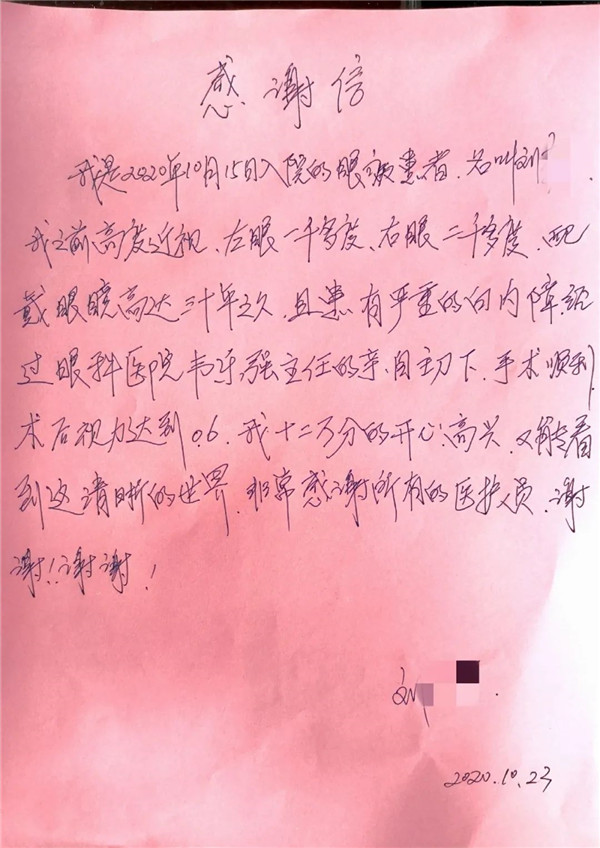 感谢信
我是2020年10月15日入院的眼疾患者,名叫刘
我之前高度近视、左眼一千多度、右眼二千多度、配
戴眼镜高达三十年之久,且患有严重的白内障,经
过眼科医院韦强主任的亲自主刀下,手术顺利,
术后视力达到0.6,我十二万分的开心、高兴,又能看
到这清晰的世界,非常感谢所有的医护员,谢
谢!!谢谢!
刘
2020.10.23